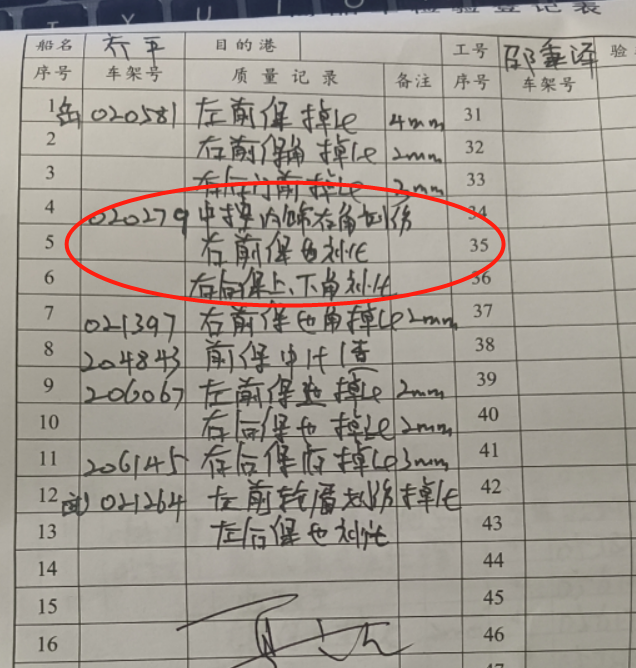 检验登记表
船名 乔平 目的港 工号 邵重泽 验
序号 车架号 质量记录 备注 序号 车架号
1 岳 020581 左前保掉漆 4mm 31
2 右前保角掉漆 2mm 32
3 右后门前掉漆 2mm 33
4 020279 中控内饰右角划伤 34
5 右前保也划化 35
6 右后保上、下角划化 36
7 021397 右前保也角掉漆 2mm 37
8 204843 前保中化1 38
9 206067 左前保 掉漆 2mm 39
10 右后保也掉漆 2mm 40
11 206145 右后保 掉漆 3mm 41
12 021264 左前轮眉划伤掉化 42
13 左后保也划化 43
14 44
15 45
16 46
47